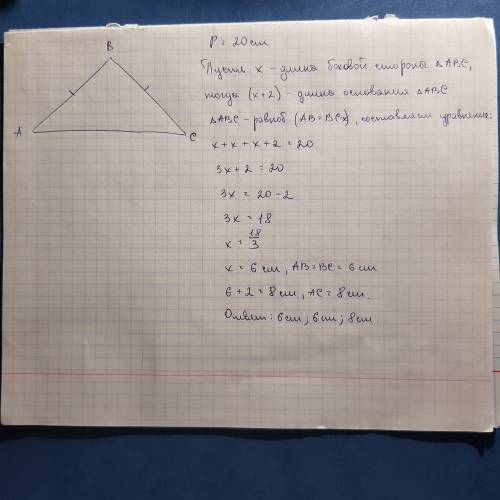 B
A
C
P = 20 см
Пусть x - длина боковой стороны △ABC,
тогда (x+2) - длина основания △ABC
△ABC - равноб (AB=BC), составляем уравнение:
x+x+x+2=20
3x+2=20
3x = 20-2
3x = 18
x = 18/3
x = 6 см, AB=BC = 6 см
6+2=8 см, AC = 8 см.
Ответ: 6 см; 6 см; 8 см